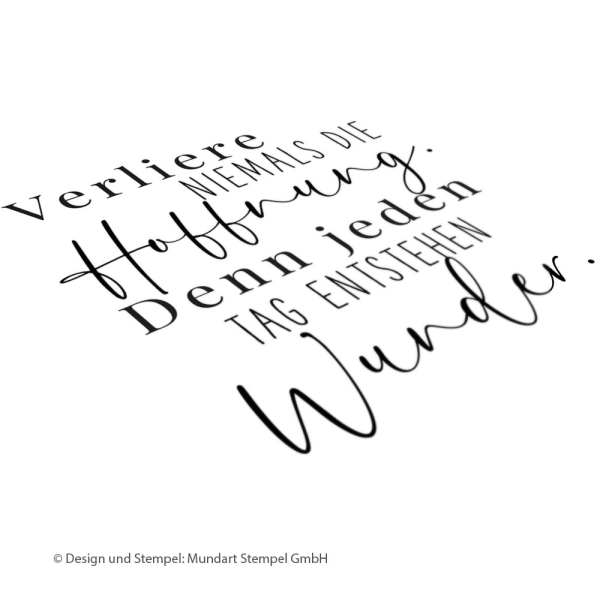 Verliere
NIEMALS DIE
Hoffnung.
Denn jeden
TAG ENTSTEHEN
Wunder.
© Design und Stempel: Mundart Stempel GmbH